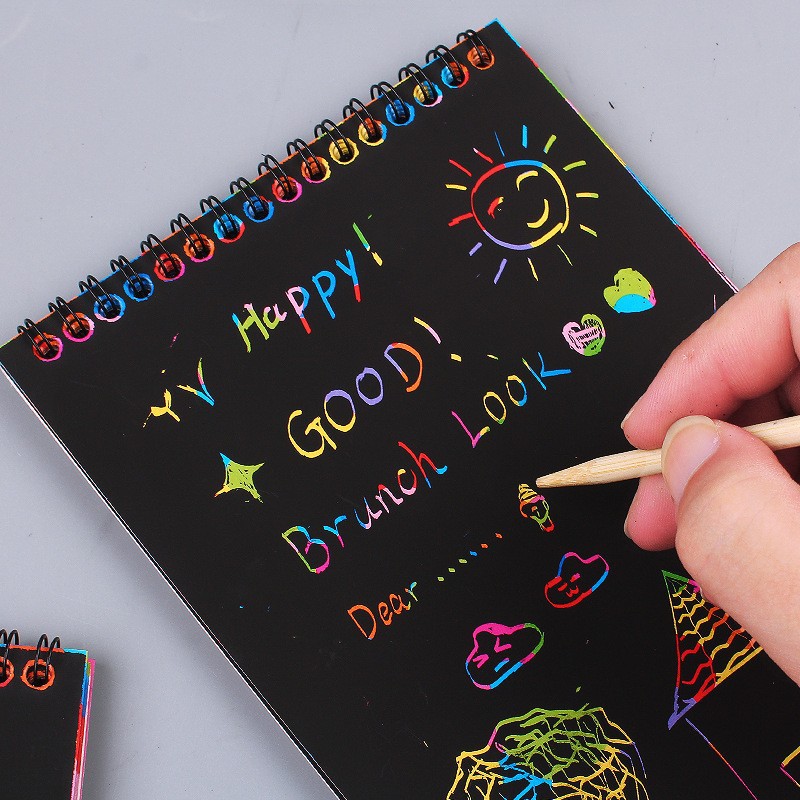 Happy!
GOOD!
Brunch LOOK
Dear .......